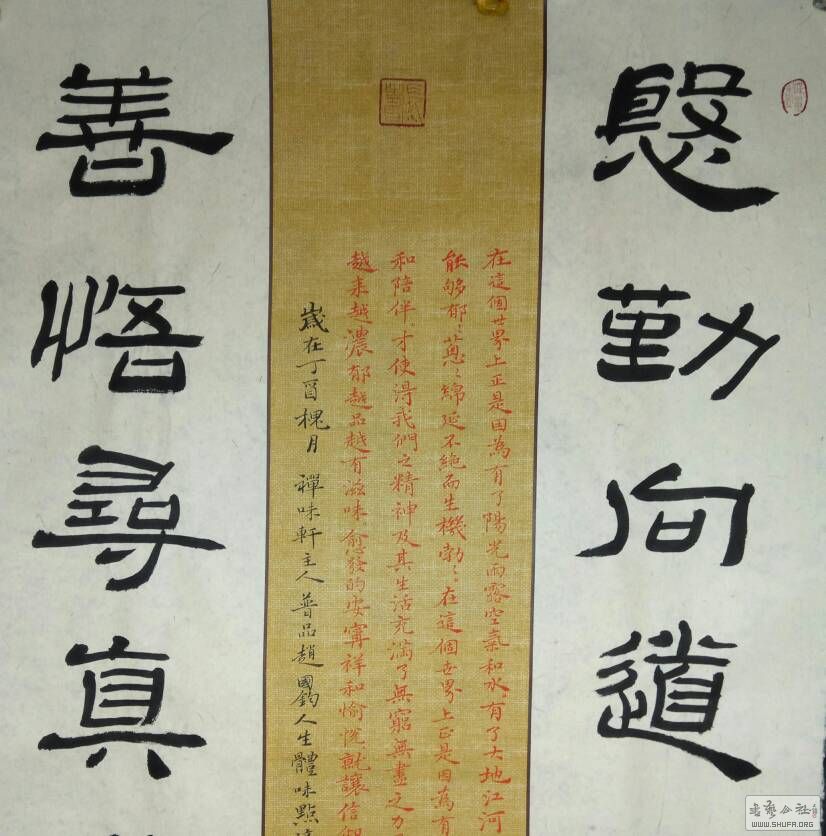 慇勤向道
在這個世界上正是因為有了陽光雨露空氣和水，有了大地江河
能够郁〻蔥〻綿延不絶而生機勃〻，在這個世界上正是因為有
和陪伴，才使得我們之精神及其生活充滿了無窮無盡之力
越来越濃郁越品越有滋味，愈發的安寧祥和愉悦，就讓信仰
歲在丁酉槐月 禪味軒主人普品趙國鈞人生體味點滴
善悟尋真
書藝公社
WWW.SHUFA.ORG